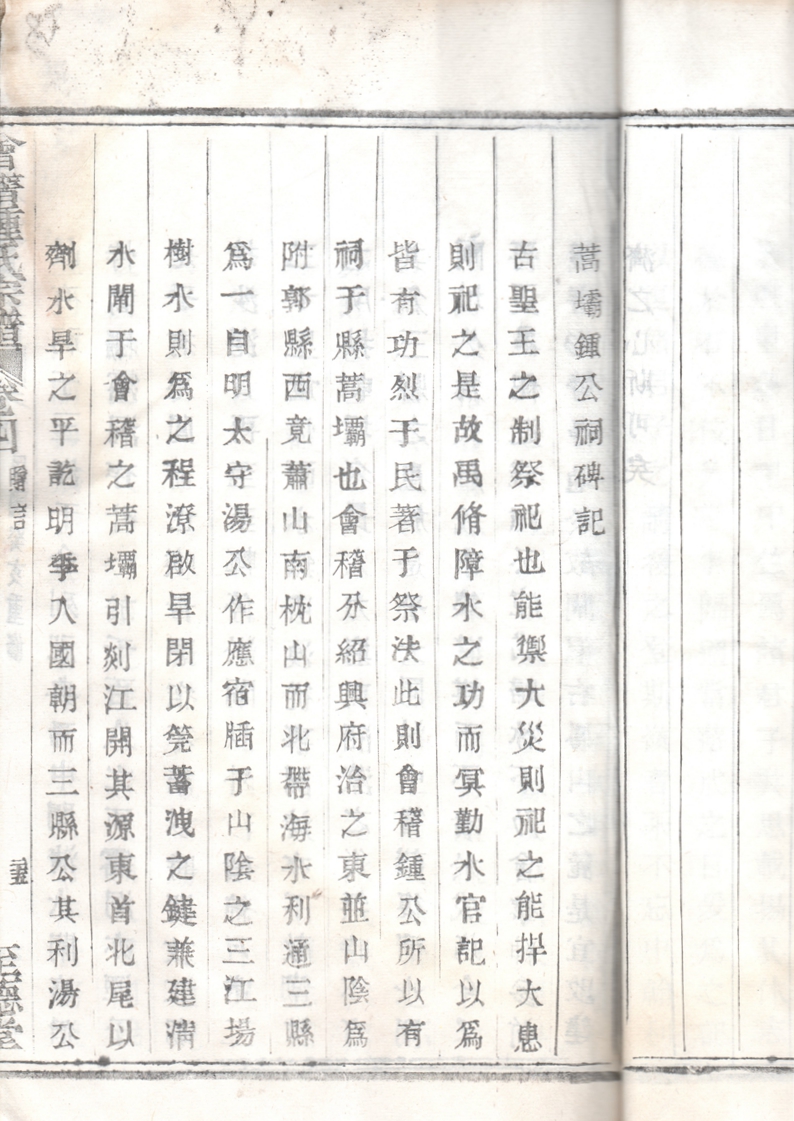 蒿壩鍾公祠碑記
古聖王之制祭祀也能禦大災則祀之能捍大患
則祀之是故禹脩障水之功而冥勤水官記以爲
皆有功烈于民著于祭法此則會稽鍾公所以有
祠于縣蒿壩也會稽分紹興府治之東並山陰爲
附郭縣西竟蕭山南枕山而北帶海水利通三縣
爲一自明太守湯公作應宿牐于山陰之三江場
樹水則爲之程潦啟旱閉以筦蓄洩之鍵兼建淸
水閘于會稽之蒿壩引剡江開其源東首北尾以
劑水旱之平訖明季入國朝而三縣公其利湯公
會稽鍾氏宗譜 卷四
碑記
至德堂